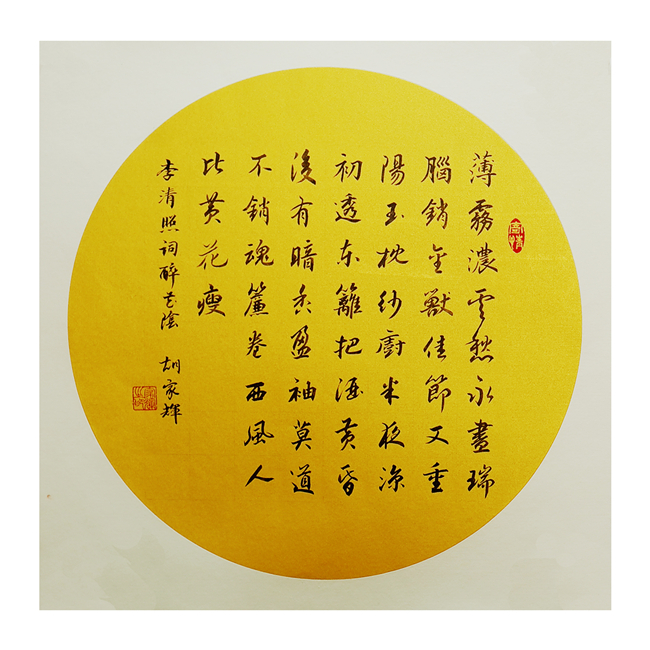 薄霧濃雲愁永晝瑞
腦銷金獸佳節又重
陽玉枕紗廚半夜涼
初透東籬把酒黃昏
後有暗香盈袖莫道
不銷魂簾卷西風人
比黃花瘦
李清照詞醉花陰 胡家輝